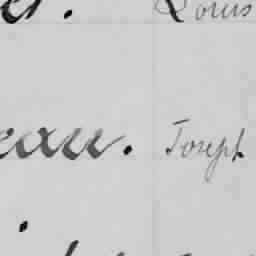 er. Louis
eau. Joseph